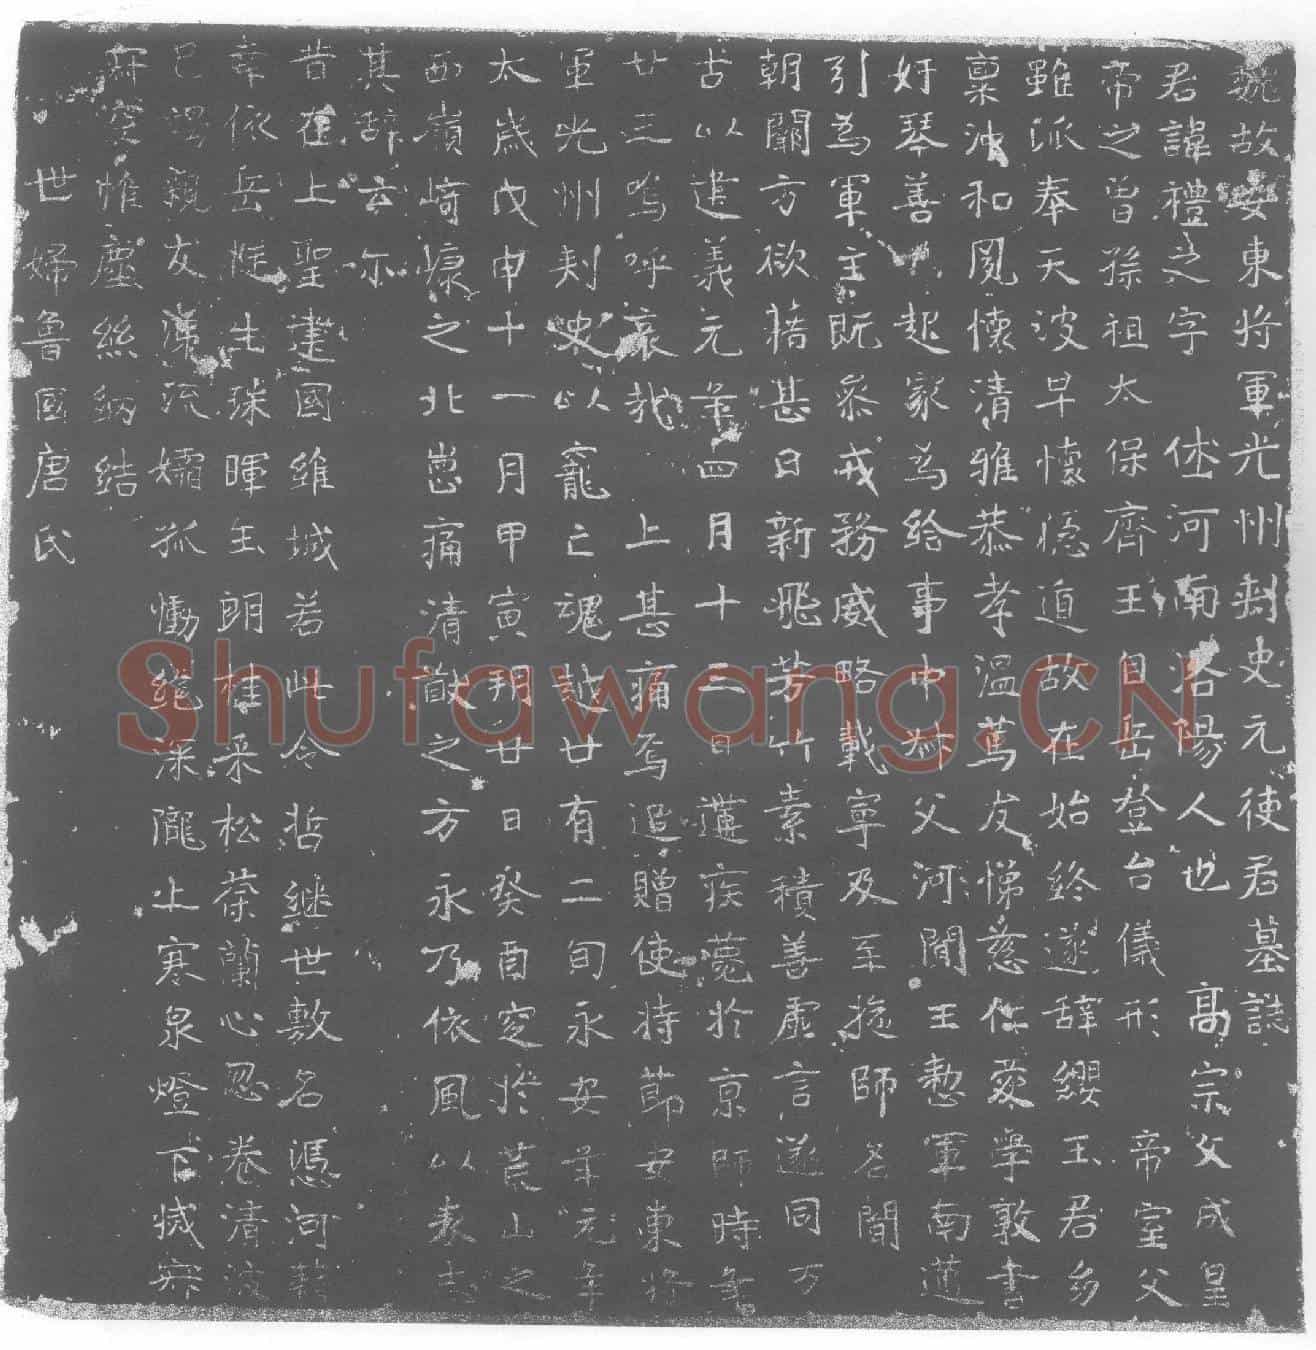 魏故安東將軍光州刺史元使君墓誌
君諱禮之字 休河南洛陽人也 高宗文成皇
帝之曾孫祖太保齊王自岳登台儀形 帝室父
雖派奉天波早懷隱逌故在始終遂辭纓王君幼
稟沖和夙懷清雅恭孝溫篤友悌慈仁愛學敦書
好琴善 起家為給事中 父河間王懃軍南邁
引為軍主既參戎務威略載寧及至旋師名聞
朝闕方欲藉甚日新飛芳竹素積善虛言遂同万
古以進義元年四月十三日遘疾薨於京師時年
廿三嗚呼哀哉 上甚痛焉追贈使持節安東將
軍光州刺史以寵亡魂越廿有二旬永安年元年
太歲戊申十一月甲寅朔廿日癸酉窆於芒山之
西嶺 之北崽痛清猷之方永乃依風以表志
其辭云尓
昔在上聖建國維城若此令哲繼世敷名憑河藉
章依岳 生珠暉玉朗桂采松榮蘭心忍卷清波
已 親友涕流孀孤慟絕深隴上寒泉燈下滅寂
 空惟塵絲網結
世婦魯國唐氏
Shufawang.CN